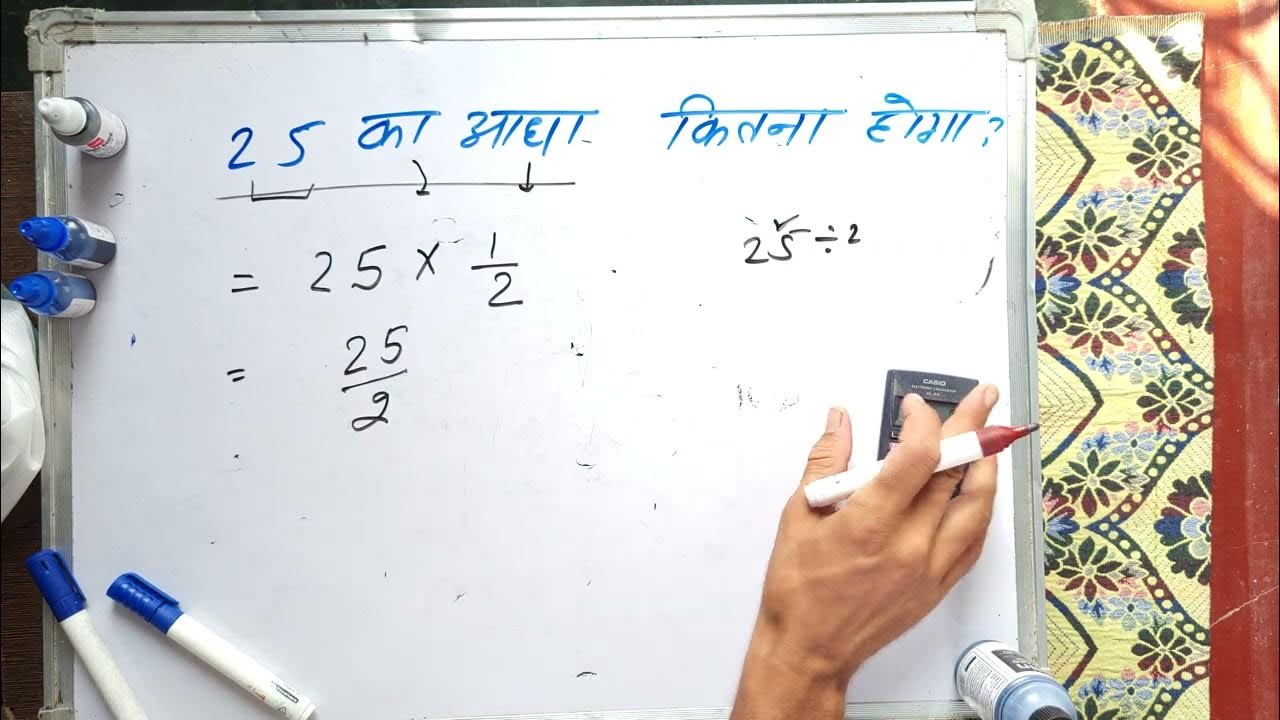 25 का आधा कितना होगा?
= 25 × 1/2
25 ÷ 2
= 25/2
CASIO